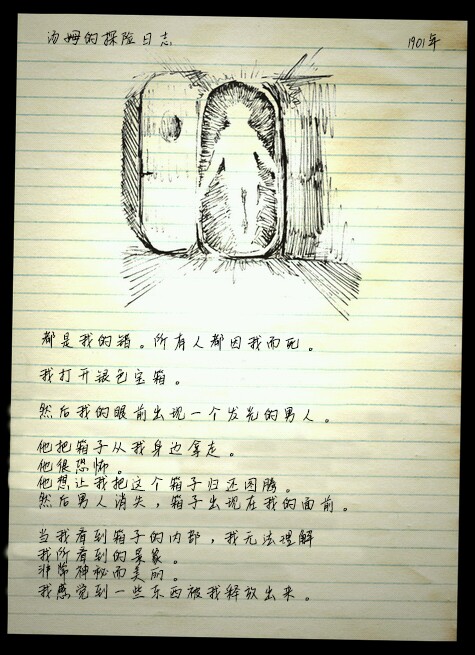 汤姆的探险日志
1901年
都是我的错。所有人都因我而死。
我打开银色宝箱。
然后我的眼前出现一个发光的男人。
他把箱子从我身边拿走。
他很恐怖。
他想让我把这个箱子归还图腾。
然后男人消失，箱子出现在我的面前。
当我看到箱子的内部，我无法理解
我所看到的景象。
非常神秘而美丽。
我感觉到一些东西被我释放出来。